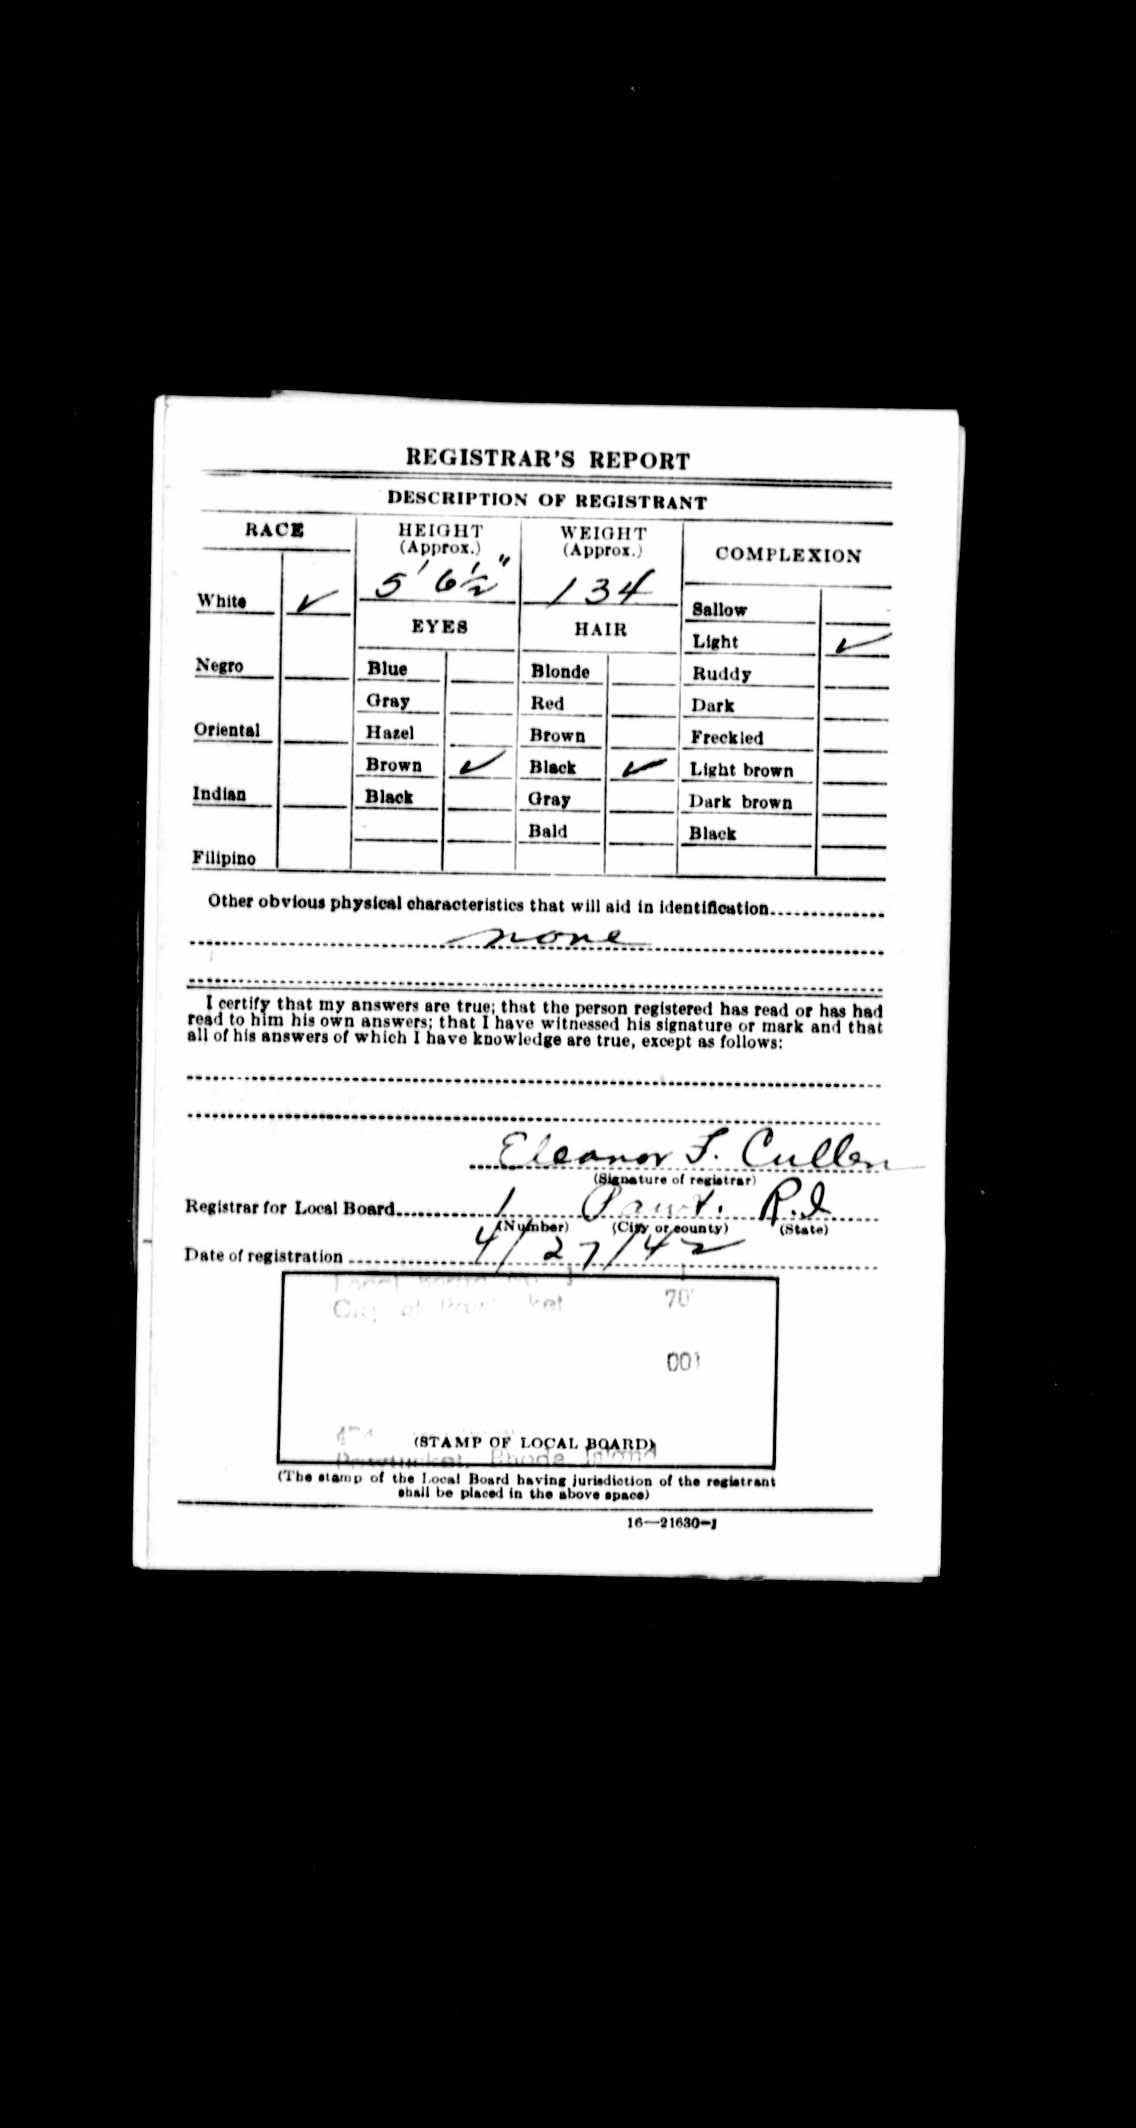 REGISTRAR'S REPORT
DESCRIPTION OF REGISTRANT
RACE
White ✓
Negro
Oriental
Indian
Filipino
HEIGHT
(Approx.)
5' 6½"
WEIGHT
(Approx.)
134
EYES
Blue
Gray
Hazel
Brown ✓
Black
HAIR
Blonde
Red
Brown
Black ✓
Gray
Bald
COMPLEXION
Sallow
Light ✓
Ruddy
Dark
Freckled
Light brown
Dark brown
Black
Other obvious physical characteristics that will aid in identification
none
I certify that my answers are true; that the person registered has read or has had
read to him his own answers; that I have witnessed his signature or mark and that
all of his answers of which I have knowledge are true, except as follows:
Eleanor F. Cullen
(Signature of registrar)
Registrar for Local Board 1 Pawt. R.I
(Number) (City or county) (State)
Date of registration 4/27/42
Local Board No. 1
City of Pawtucket 70
001
(STAMP OF LOCAL BOARD)
Pawtucket, Rhode Island
(The stamp of the Local Board having jurisdiction of the registrant
shall be placed in the above space)
16—21630-1